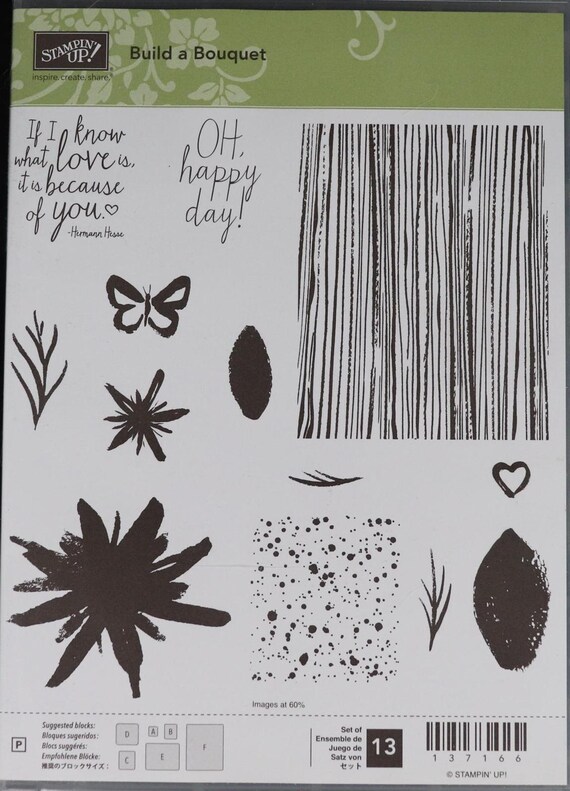 STAMPIN' UP!
inspire. create. share.®
Build a Bouquet
If I know
what love is,
it is because
of you.♡
-Hermann Hesse
OH,
happy
day!
Images at 60%
P
Suggested blocks:
Bloques sugeridos:
Blocs suggérés:
Empfohlene Blöcke:
推奨のブロックサイズ:
D
A
B
C
E
F
Set of
Ensemble de
Juego de
Satz von
セット
13
137166
© STAMPIN' UP!